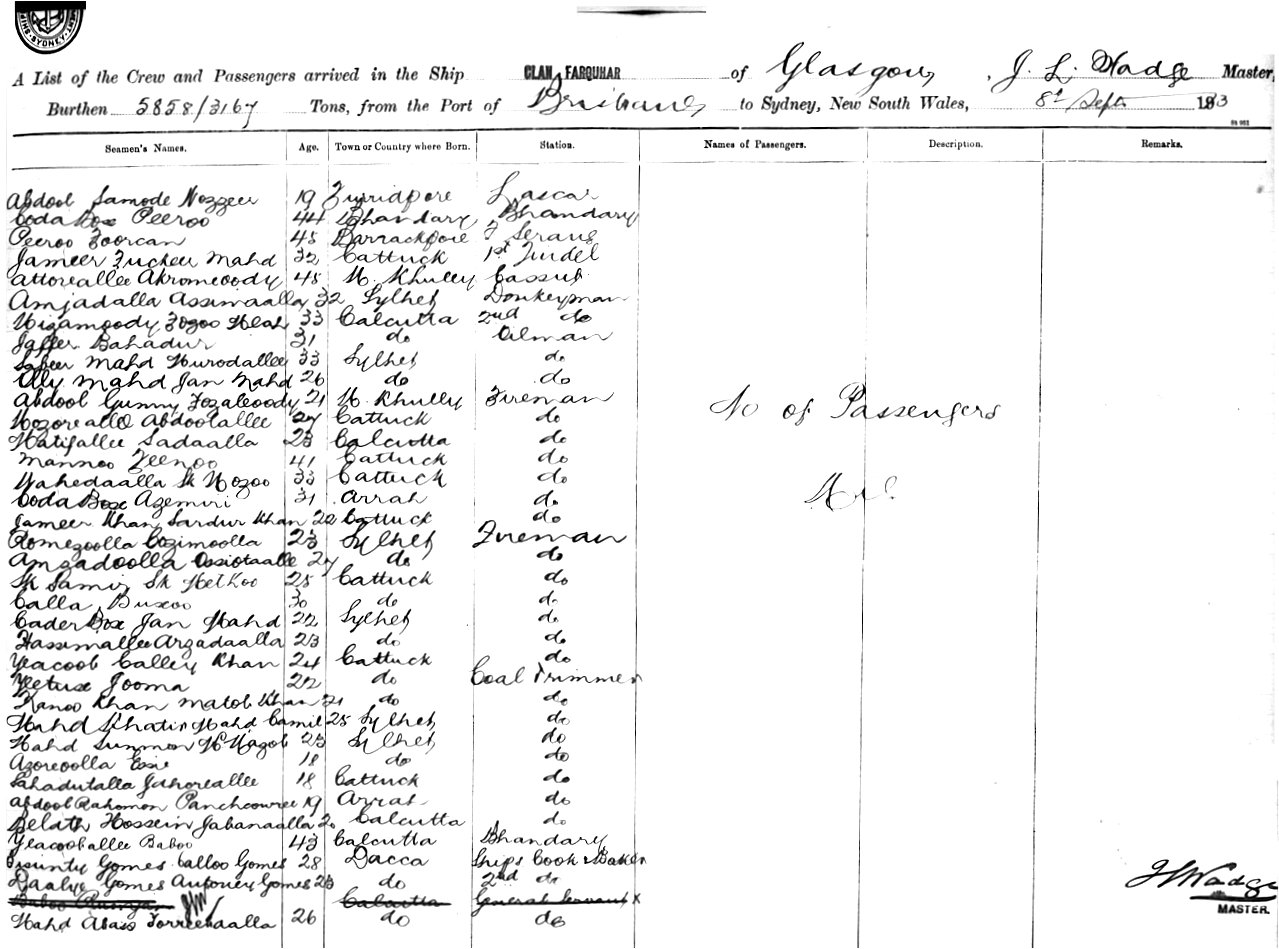 SYDNEY
A List of the Crew and Passengers arrived in the Ship CLAN FARQUHAR of Glasgow, J. L. Wadge Master,
Burthen 5858/3167 Tons, from the Port of Brisbane to Sydney, New South Wales, 8th Sept 1913
Seamen's Names. Age. Town or Country where Born. Station. Names of Passengers. Description. Remarks.
Abdool Samode Nozzeer 19 Furridpore Lascar
Coda Box Peeroo 44 Bhandary Bhandary
Peeroo Toorcan 45 Barrackpore F Serang
Jameer Fuckeer Mahd 32 Cattuck 1st Tindel
Attoreallee Akromooddy 45 N. Khully Cassub
Amjadalla Assimaalla 32 Sylhet Donkeyman
Nizamoody Meah 33 Calcutta 2nd do
Jaffer Bahadur 31 do Oilman
Mahd Nurodallee 33 Sylhet do
Olly Mahd Jan Mahd 26 do do
Abdool Gunny Fozaleoody 21 N. Khully Fireman
Nozorealle Abdoolallee 27 Cattuck do
No of Passengers
Hatifallee Sadaalla 23 Calcutta do
Mannoo Zeenoo 41 Cattuck do
Wahedaalla Sk Nozoo 33 Cattuck do
Nil
Coda Box Azemiri 31 Arrah do
Jameer Khan Sardur Khan 22 Cattuck do
Romezoolla Cozimoolla 23 Sylhet Fireman
Amzadoolla Ossiotaalle 27 do do
Sk Samir Sk Netkoo 25 Cattuck do
Calla Buxoo 30 do do
Cader Box Jan Mahd 22 Sylhet do
Hassimallee Arzadaalla 23 do do
Yeacoob Calley Khan 24 Cattuck do
Jooma 22 do Coal Trimmer
Kanoo Khan Matob Khan 21 do do
Mahd Khatir Mahd Camil 25 Sylhet do
Mahd Summon 23 Sylhet do
Azoreoolla Essie 18 do do
Sahadutalla Johoreallee 18 Cattuck do
Abdool Rahomon Panchcowree 19 Arrah do
Belath Hossein Jabanaalla 20 Calcutta do
Yeacooballee Baboo 43 Calcutta Bhandary
Gomes Calloo Gomes 28 Dacca Ships Cook & Baker
Gomes Antoney Gomes 23 do 2nd do
J L Wadge
Baboo Calcutta General Servant x
MASTER.
Mahd Abass 26 do do